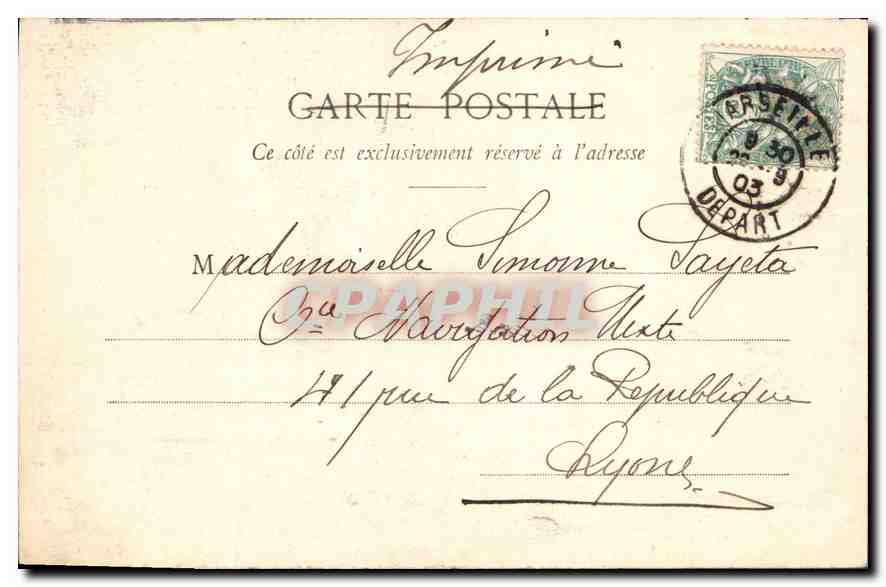 Imprimé
CARTE POSTALE
Ce côté est exclusivement réservé à l'adresse
RÉPUBLIQUE
POSTES
MARSEILLE
9 30
9
03
DEPART
Mademoiselle Simonne Sayeta
Cie Navigation Mixte
41 rue de la Republique
Lyon
CPAPHIL